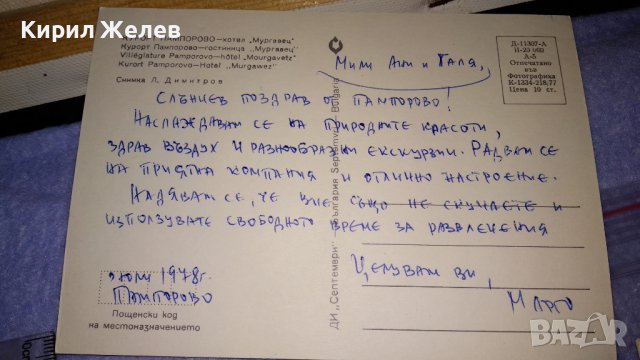 Кирил Желев
КУРОРТ ПАМПОРОВО—хотел „Мургавец"
Курорт Пампорово—гостиница „Мургавец"
Villégiature Pamporovo—hôtel „Mourgavetz"
Kurort Pamporovo—Hotel „Murgawez"
Снимка Л. Димитров
Д-11307-А
II-20 000
А-5
Отпечатано
във
Фотографика
К-1334-218,77
Цена 10 ст.
Мили Ани и Галя,
Слънчев поздрав от Пампорово!
Наслаждавам се на природните красоти,
здрав въздух и разнообразни екскурзии. Радвам се
на приятна компания и отлично настроение.
Надявам се, че вие също не скучаете и
използувате свободното време за развлечения
Целувам ви,
юли 1978г.
Пампорово
Пощенски код
на местоназначението
ДИ „Септември" България Septemvri Bulgaria
BAZAR
bg